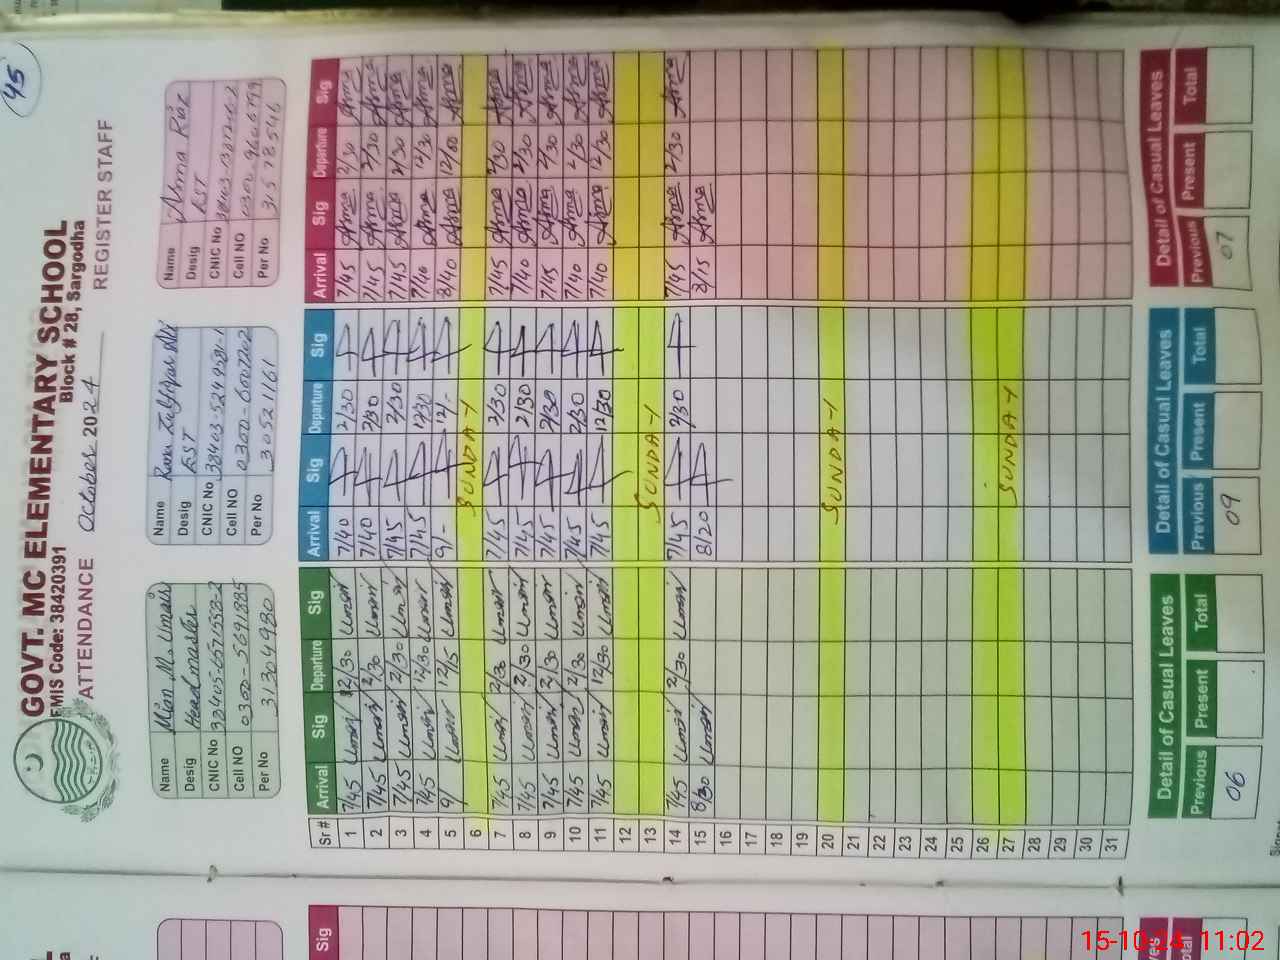 45
GOVT. MC ELEMENTARY SCHOOL
EMIS Code: 38420391 Block # 28, Sargodha
ATTENDANCE October 2024 REGISTER STAFF
Name Mian M. Umair
Desig Headmaster
CNIC No
Cell NO 0300-5691885
Per No 31304980
Name Rana Zulfiqar Ali
Desig EST
CNIC No
Cell NO 0300-6007202
Per No 30521161
Name Asma Riaz
Desig EST
CNIC No
Cell NO 0302-9606799
Per No 31578546
Sr # Arrival Sig Departure Sig Arrival Sig Departure Sig Arrival Sig Departure Sig
1 7/45 Umair 2/30 Umair 7/40 2/30 7/45 Asma 2/30 Asma
2 7/45 Umair 2/30 Umair 7/40 2/30 7/45 Asma 2/30 Asma
3 7/45 Umair 2/30 Umair 7/45 2/30 7/45 Asma 2/30 Asma
4 7/45 Umair 12/30 Umair 7/45 12/30 Asma 12/30 Asma
5 9/ Umair 12/15 Umair 9/- 12/- 8/40 Asma 12/00 Asma
6 SUNDAY
7 7/45 Umair 2/30 Umair 7/45 2/30 7/45 Asma 2/30 Asma
8 7/45 Umair 2/30 Umair 7/45 2/30 7/40 Asma 2/30 Asma
9 7/45 Umair 2/30 Umair 7/45 2/30 7/45 Asma 2/30 Asma
10 7/45 Umair 2/30 Umair 7/45 2/30 7/40 Asma 2/30 Asma
11 7/45 Umair 12/30 Umair 7/45 12/30 7/40 Asma 12/30 Asma
12
13 SUNDAY
14 7/45 Umair 2/30 Umair 7/45 2/30 7/45 Asma 2/30 Asma
15 8/30 Umair 8/20 8/15 Asma
16
17
18
19
20 SUNDAY
21
22
23
24
25
26
27 SUNDAY
28
29
30
31
Detail of Casual Leaves Detail of Casual Leaves Detail of Casual Leaves
Previous Present Total Previous Present Total Previous Present Total
06 09 07
Sig
15-10-24 11:02